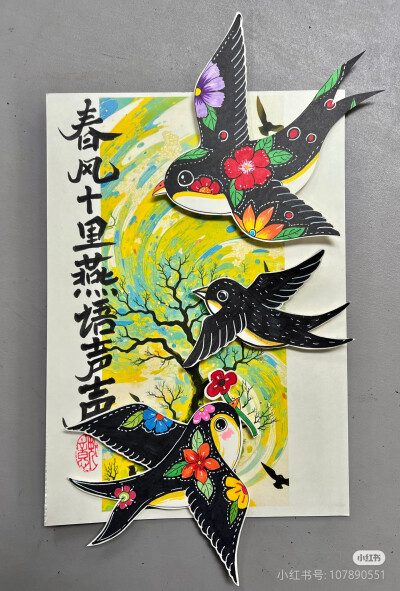 春风十里燕语声声
小红书
小红书号: 107890551